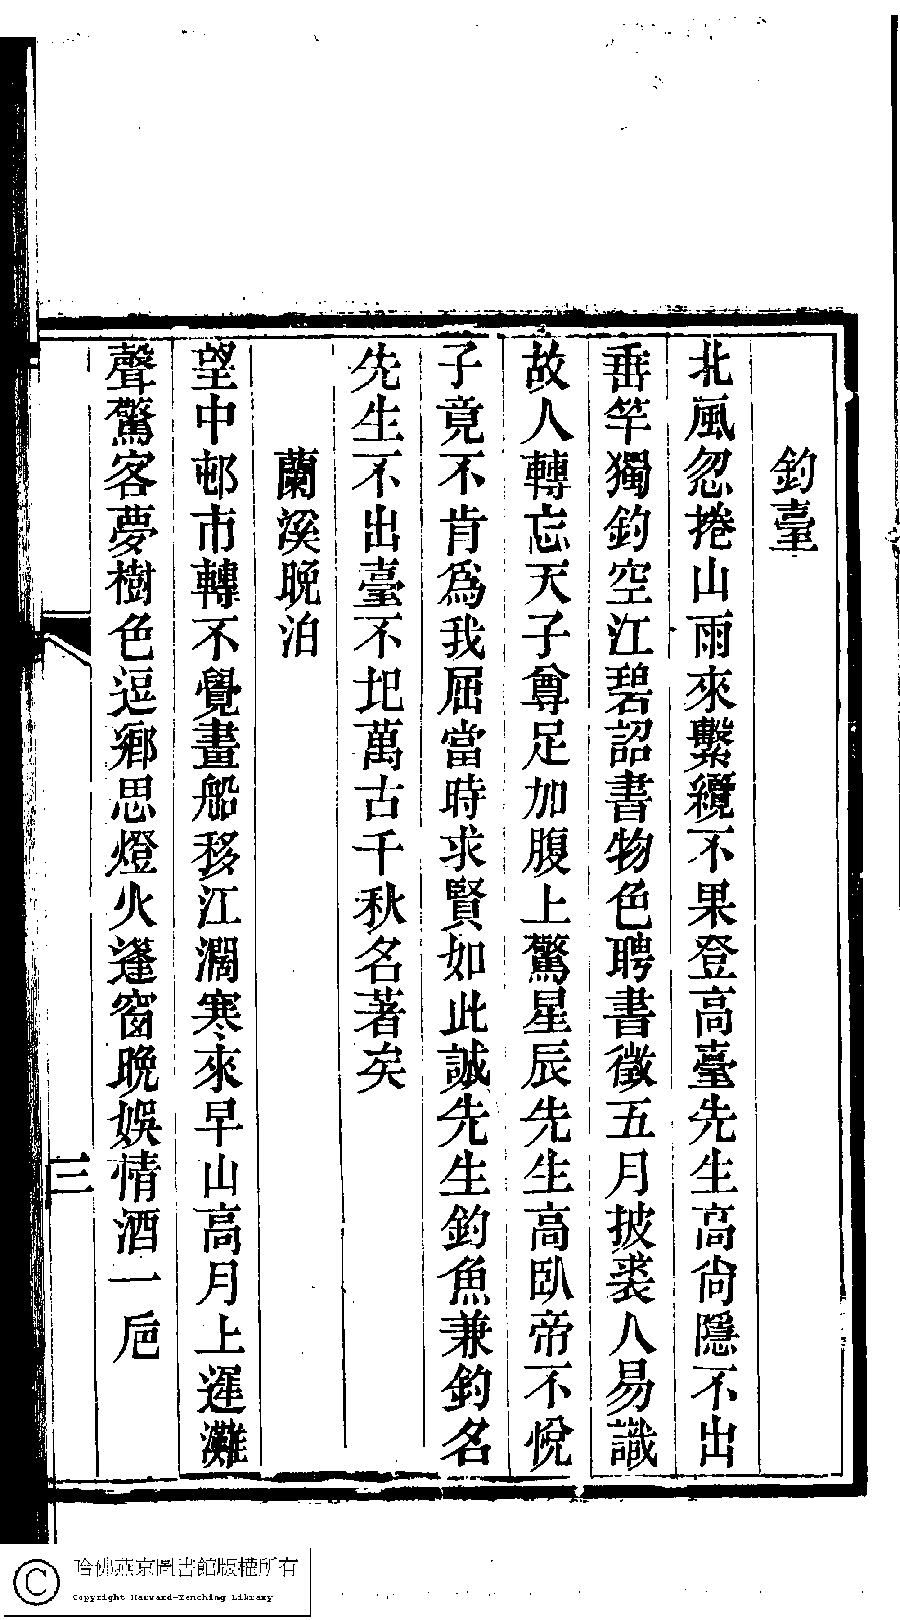 釣臺
北風忽捲山雨來繫纜不果登高臺先生高尙隱不出
垂竿獨釣空江碧詔書物色聘書徵五月披裘人易識
故人轉忘天子尊足加腹上驚星辰先生高臥帝不悅
子竟不肯爲我屈當時求賢如此誠先生釣魚兼釣名
先生不出臺不圯萬古千秋名著矣
蘭溪晚泊
望中邨市轉不覺畫船移江濶寒來早山高月上遲灘
聲驚客夢樹色逗鄉思燈火蓬窗晚娛情酒一巵
三
哈佛燕京圖書館版權所有
Copyright Harvard-Yenching Library